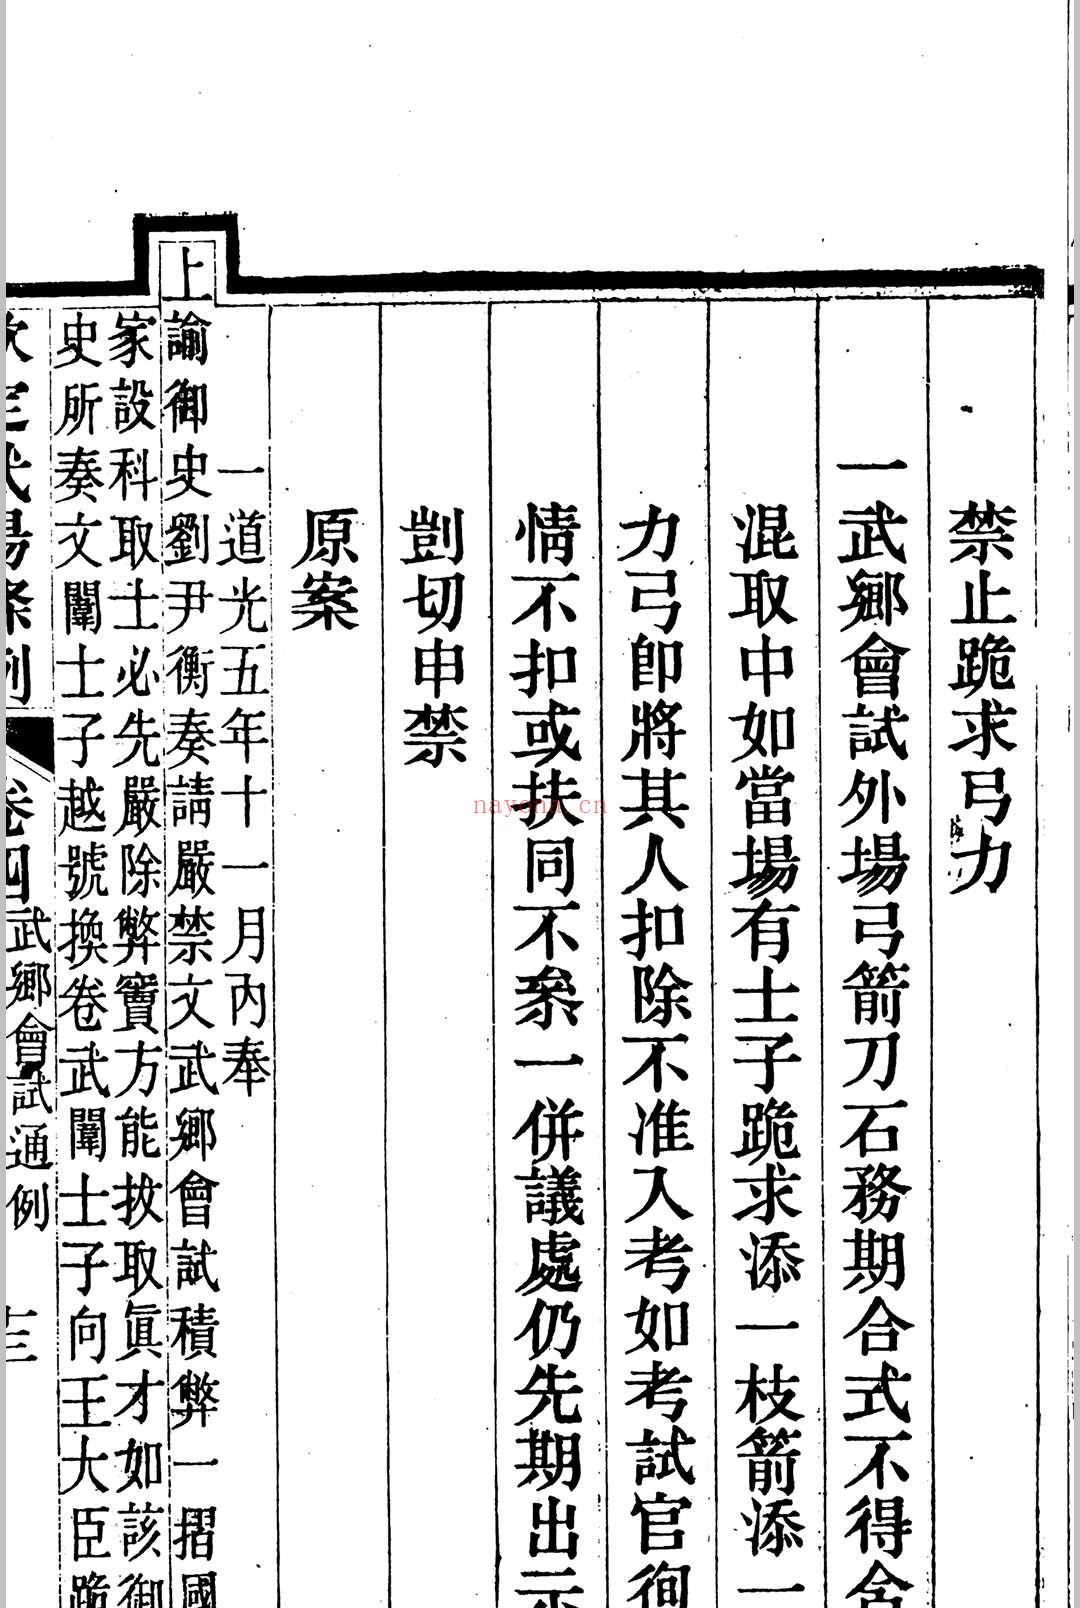 禁止跪求弓力
一武鄉會試外場弓箭刀石務期合式不得含
混取中如當場有士子跪求添一枝箭添一
力弓卽將其人扣除不准入考如考試官徇
情不扣或扶同不叅一併議處仍先期出示
剴切申禁
原案
一道光五年十一月內奉
上諭御史劉尹衡奏請嚴禁文武鄉會試積弊一摺國
家設科取士必先嚴除弊竇方能拔取眞才如該御
史所奏文闈士子越號換卷武闈士子向王大臣跪
欽定武場條例 卷四 武鄉會試通例 十三
nayona.cn